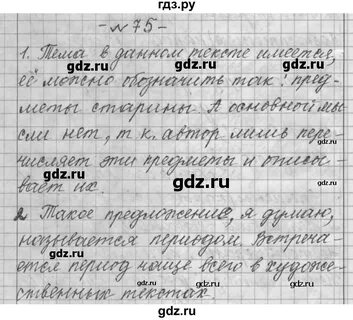 gdz.ru
- № 75 -
1. Тема в данном тексте имеется,
её можно обозначить так: пред-
меты старины. А основной мы-
сли нет, т.к. автор лишь пере-
числяет эти предметы и описы-
вает их.
2 Такое предложение, я думаю,
называется периодом. Встреча-
ется период чаще всего в художе-
ственных текстах.